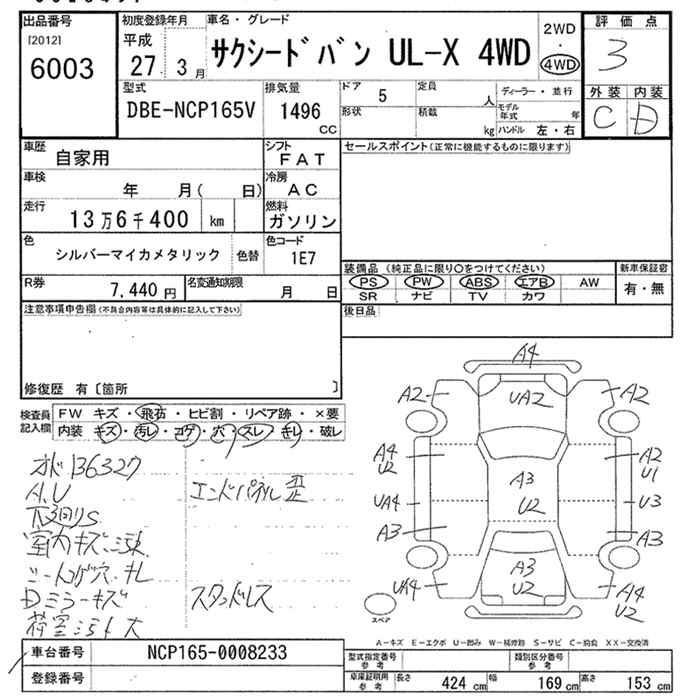 出品番号
[2012]
6003
初度登録年月
平成
27. 3月
車名・グレード
サクシードバン UL-X 4WD
2WD
・
4WD
評価点
3
外装 内装
C D
型式
DBE-NCP165V
排気量
1496
CC
ドア 5
定員
人
形状
積載
kg
ディーラー・並行
モデル年式
年
ハンドル 左・右
車歴
自家用
シフト
FAT
車検
年 月( 日)
冷房
AC
走行
13万6千400 km
燃料
ガソリン
色
シルバーマイカメタリック 色替
色コード
1E7
R券
7,440 円
名変通知期限
月 日
セールスポイント(正常に機能するものに限ります)
装備品 (純正品に限り〇をつけてください)
PS PW ABS エアB AW
SR ナビ TV カワ
新車保証書
有・無
後日品
注意事項申告欄(不具合内容等は具体的に記入して下さい)
修復歴 有〔箇所 〕
検査員記入欄
FW キズ・飛石・ヒビ割・リペア跡・×要
内装 キズ・汚レ・コゲ・穴・スレ・キレ・破レ
136327
A.U
下廻りS
室内キズ
エンドパネル歪
Dミラーキズ
スタッドレス
荷室 大
A4
A2 UA2 A2
A4
U2
A2
U1
A3
U2
UA4
U3
A3
A3
A3
U2
UA4
A4
U2
スペア
A-キズ E-エクボ U-凹み W-補修跡 S-サビ C-腐食 XX-交換済
車台番号
NCP165-0008233
登録番号
型式指定番号
参考
類別区分番号
参考
車庫証明用
参考
長さ 424 cm
幅 169 cm
高さ 153 cm